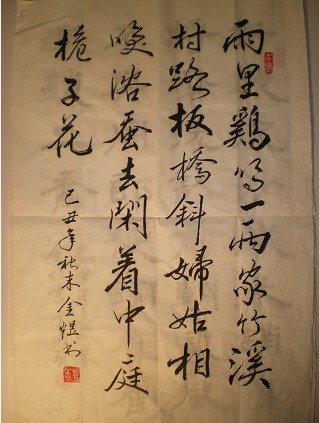 雨里鷄鸣一兩家竹溪
村路板橋斜婦姑相
唤浴蚕去閑着中庭
栀子花
己丑年秋末金煜书